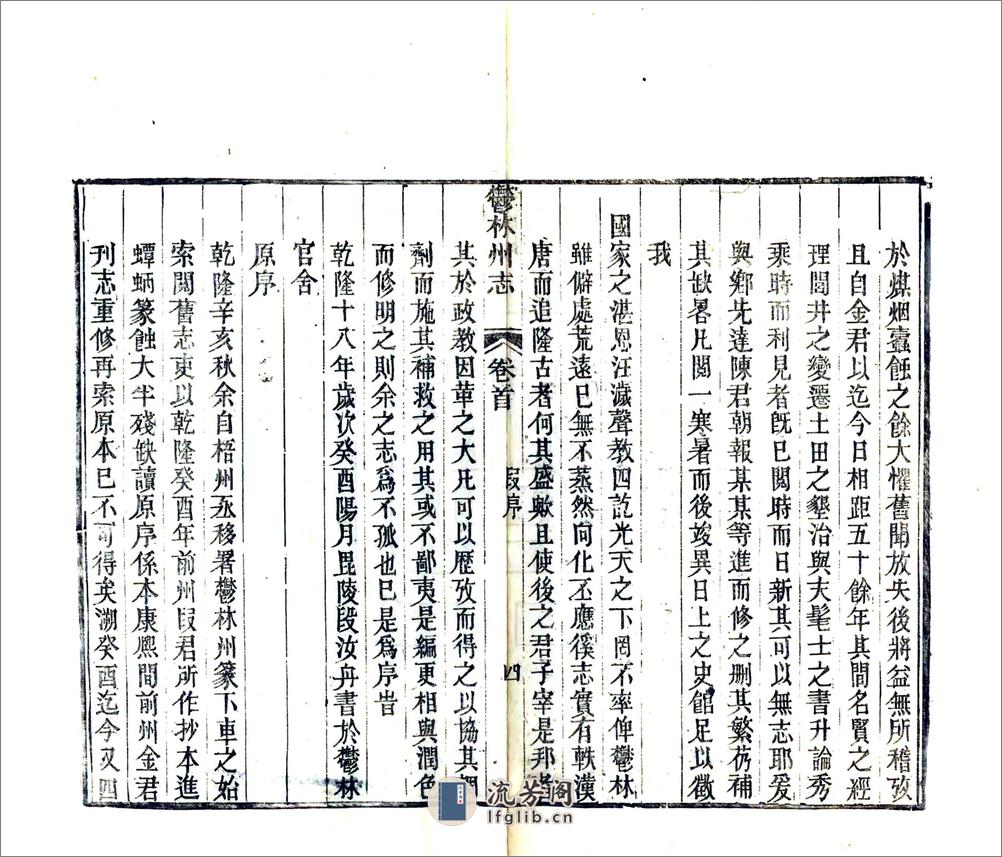 於煤烟蠧蝕之餘大懼舊聞放失後將益無所稽攷
且自金君以迄今日相距五十餘年其間名賢之經
理閭井之變遷土田之墾治與夫髦士之書升論秀
乘時而利見者旣巳閱時而日新其可以無志耶爰
與鄉先達陳君朝報某某等進而修之删其繁芿補
其缺畧凡閱一寒暑而後竣異日上之史館足以徵
我
國家之湛恩汪濊聲教四訖光天之下罔不率俾鬱林
雖僻處荒遠巳無不蒸然向化丕應徯志實有軼漢
唐而追隆古者何其盛歟且使後之君子宰是邦者
鬱林州志 卷首 叚序 四
其於政教因革之大凡可以歷攷而得之以協其調
劑而施其補救之用其或不鄙夷是編更相與潤色
而修明之則余之志爲不孤也巳是爲序旹
乾隆十八年歲次癸酉陽月毘陵段汝舟書於鬱林
官舍
原序
乾隆辛亥秋余自梧州丞移署鬱林州篆下車之始
索閱舊志吏以乾隆癸酉年前州叚君所作抄本進
蟫蛃篆蝕大半殘缺讀原序係本康熈間前州金君
刊志重修再索原本巳不可得矣溯癸酉迄今又四
流芳阁
lfglib.cn